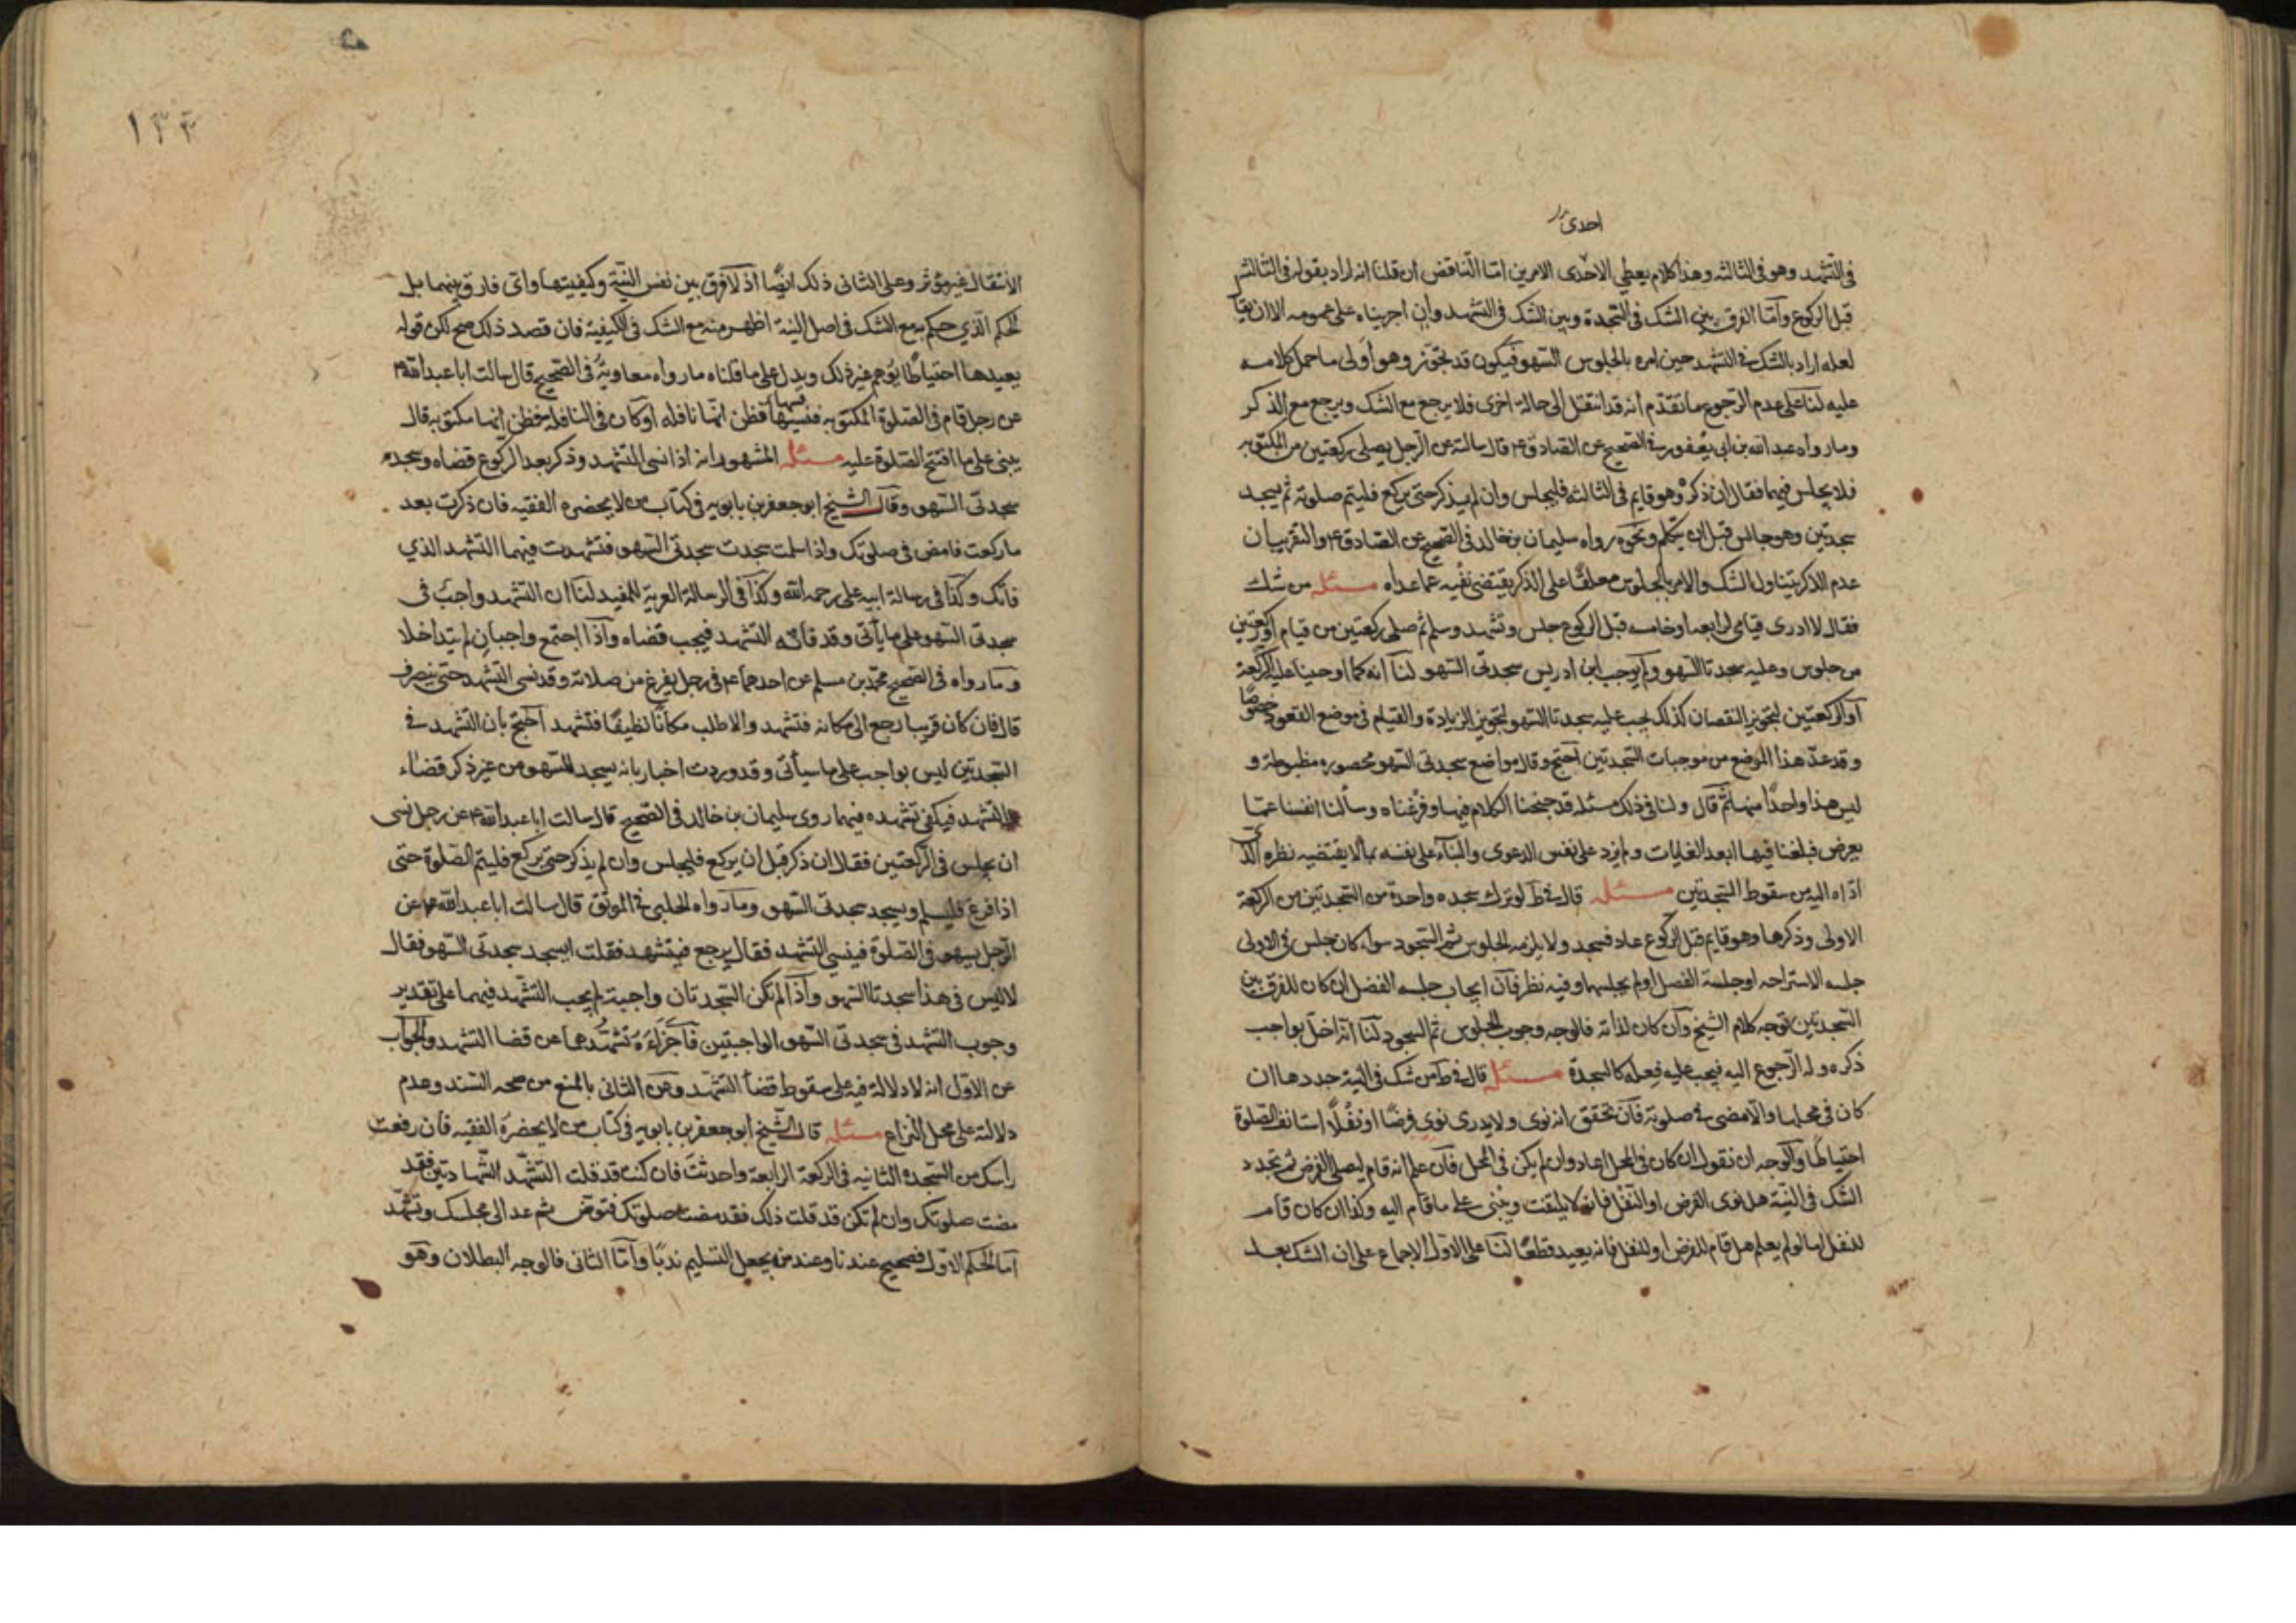 احدى
في التشهد وهو في الثالثه وهذا كلام يعطي الاحدى الامرين امّا التناقض ان قلنا انه اراد بقوله في الثالثه
قبل الركوع وامّا الفرق بين الشك في السجدة وبين الشك في التشهد وان اجريناه على عمومه الا ان يقا
لعله اراد بالشك في التشهد حين امره بالجلوس السهو فيكون قد تجوّز وهو اولى ما حمل كلامه
عليه لنا على عدم الرجوع ما تقدّم انه قد انتقل الى حالة اخرى فلا يرجع مع الشك ويرجع مع الذكر
وما رواه عبد الله بن ابي يعفور في الصحيح عن الصادق ع قال سالته عن الرجل يصلي ركعتين من المكتوبه
فلا يجلس فيهما فقال ان ذكره وهو قايم في الثالثه فليجلس وان لم يذكر حتى يركع فليتم صلوته ثم يسجد
سجدتين وهو جالس قبل ان يتكلم ونحوه رواه سليمان بن خالد في الصحيح عن الصادق ع والتقريب ان
عدم الذكر يتناول الشك والامر بالجلوس معلقًا على الذكر يقتضي نفيه عما عداه مسئله من شك
فقال لا ادرى قيامي لرابعه او خامسه قبل الركوع جلس وتشهد وسلم ثم صلى ركعتين من قيام او ركعتين
من جلوس وعليه سجدتا السهو ولم يوجب ابن ادريس سجدتى السهو لنا انه كما اوجبنا عليه الركعة
او الركعتين لتجويز النقصان كذلك يجب عليه سجدتا السهو لتجويز الزيادة والقيام في موضع القعود خصوصًا
وقد عدّ هذا الموضع من موجبات السجدتين احتج وقال مواضع سجدتى السهو محصوره مضبوطة و
ليس هذا واحدًا منها ثم قال ولنا في ذلك مسئله قد جنحنا الكلام فيها وفرغناه وسألنا انفسنا عمّا
يعرض فبلغنا فيها ابعد الغايات ولم يزد على نفس الدعوى والبناء على نفسه بما لا يقتضيه نظره الذى
ادّاه اليه من سقوط السجدتين مسئله قال في ط لو ترك سجده واحدة من السجدتين من الركعة
الاولى وذكرها وهو قايم قبل الركوع عاد فسجد ولا يلزمه الجلوس ثم السجود سواء كان جلس في الاولى
جلسه الاستراحه او جلسة الفصل او لم يجلسها وفيه نظر فان ايجاب جلسه الفصل ان كان للفرق بين
السجدتين توجه كلام الشيخ وان كان لذاته فالوجه وجوب الجلوس ثم السجود لنا انه اخلّ بواجب
ذكره وله الرجوع اليه فيجب عليه فعله كالسجدة مسئله قال في ط من شك في النية جددها ان
كان في محلها والا مضى في صلوته فان تحقق انه نوى ولا يدرى نوى فرضًا او نفلًا استانف الصلوة
احتياطًا والوجه ان نقول ان كان في المحل اعاد وان لم يكن في المحل فان علم انه قام ليصلي الفرض ثم تجدد
الشك في النيّة هل نوى الفرض او النفل فانه لا يلتفت ويبنى على ما قام اليه وكذا ان كان قام
للنفل اما لو لم يعلم هل قام للفرض او للنفل فانه يعيد قطعًا لنا على الاول الاجماع على ان الشك بعد
١٣٤
الانتقال غير مؤثر وعلى الثانى ذلك ايضًا اذ لا فرق بين نفس النيّة وكيفيتها واى فارق بينهما بل
الحكم الذي حكم به مع الشك في اصل النية اظهر منه مع الشك في الكيفية فان قصد ذلك صح لكن قوله
يعيدها احتياطًا يوهم غير ذلك ويدل على ما قلناه ما رواه معاوية في الصحيح قال سالت ابا عبد الله ع
عن رجل قام في الصلوة المكتوبه فسها فظن انها نافله او كان في النافلة فظن انها مكتوبه قال
يبنى على ما افتتح الصلوة عليه مسئله المشهور انه اذا نسى التشهد وذكر بعد الركوع قضاه وسجد
سجدتى السهو وقال الشيخ ابو جعفر بن بابويه في كتاب من لا يحضره الفقيه فان ذكرت بعد
ما ركعت فامض في صلوتك واذا سلمت سجدت سجدتى السهو فتشهدت فيهما التشهد الذي
فاتك وكذا في رسالة ابيه علي رحمه الله وكذا في الرسالة العزية للمفيد لنا ان التشهد واجب في
سجدتى السهو على ما يأتى وقد فاته التشهد فيجب قضاه واذا اجتمع واجبان لم يتداخلا
وما رواه في الصحيح محمد بن مسلم عن احدهما ع في رجل يفرغ من صلاته وقد نسى التشهد حتى ينصرف
قال فان كان قريبا رجع الى مكانه فتشهد والا طلب مكانًا نظيفًا فتشهد احتج بان التشهد في
السجدتين ليس بواجب على ما سيأتى وقد وردت اخبار بانه يسجد للسهو من غير ذكر قضاء
التشهد فيكفى تشهده فيهما روى سليمان بن خالد في الصحيح قال سالت ابا عبد الله ع عن رجل نسى
ان يجلس في الركعتين فقال ان ذكر قبل ان يركع فليجلس وان لم يذكر حتى يركع فليتم الصلوة حتى
اذا فرغ فليسلم ويسجد سجدتى السهو وما رواه الحلبي في الموثق قال سالت ابا عبد الله ع عن
الرجل يسهو في الصلوة فينسى التشهد فقال يرجع فيتشهد فقلت ايسجد سجدتى السهو فقال
لا ليس في هذا سجدتا السهو واذا لم تكن السجدتان واجبة لم يجب التشهد فيهما على تقدير
وجوب التشهد في سجدتى السهو الواجبتين فاجزاءه تشهدهما عن قضا التشهد والجواب
عن الاول انه لا دلالة فيه على سقوط قضأ التشهد وعن الثانى بالمنع من صحه السند وعدم
دلالته على محل النزاع مسئله قال الشيخ ابو جعفر بن بابويه في كتاب من لا يحضره الفقيه فان رفعت
راسك من السجده الثانيه في الركعة الرابعة واحدثت فان كنت قد قلت التشهد الشهادتين فقد
مضت صلوتك وان لم تكن قد قلت ذلك فقد مضت صلوتك فتوض ثم عد الى مجلسك وتشهد
اما الحكم الاول فصحيح عندنا وعند من يجعل التسليم ندبًا وامّا الثانى فالوجه البطلان وهو